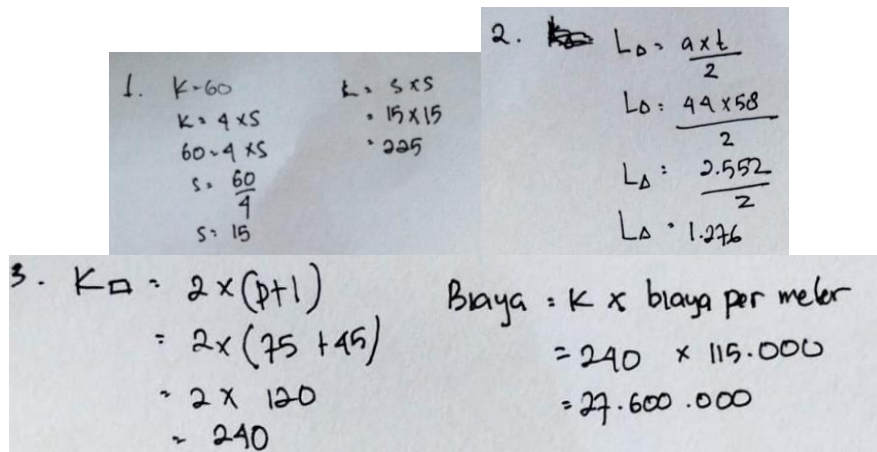 1. K = 60
K = 4 x s
60 = 4 x s
s = 60/4
s = 15
L = s x s
= 15 x 15
= 225
2. L△ = a x t / 2
L△ = 44 x 58 / 2
L△ = 2.552 / 2
L△ = 1.276
3. K▭ = 2 x (p + l)
= 2 x (75 + 45)
= 2 x 120
= 240
Biaya = K x biaya per meter
= 240 x 115.000
= 27.600.000